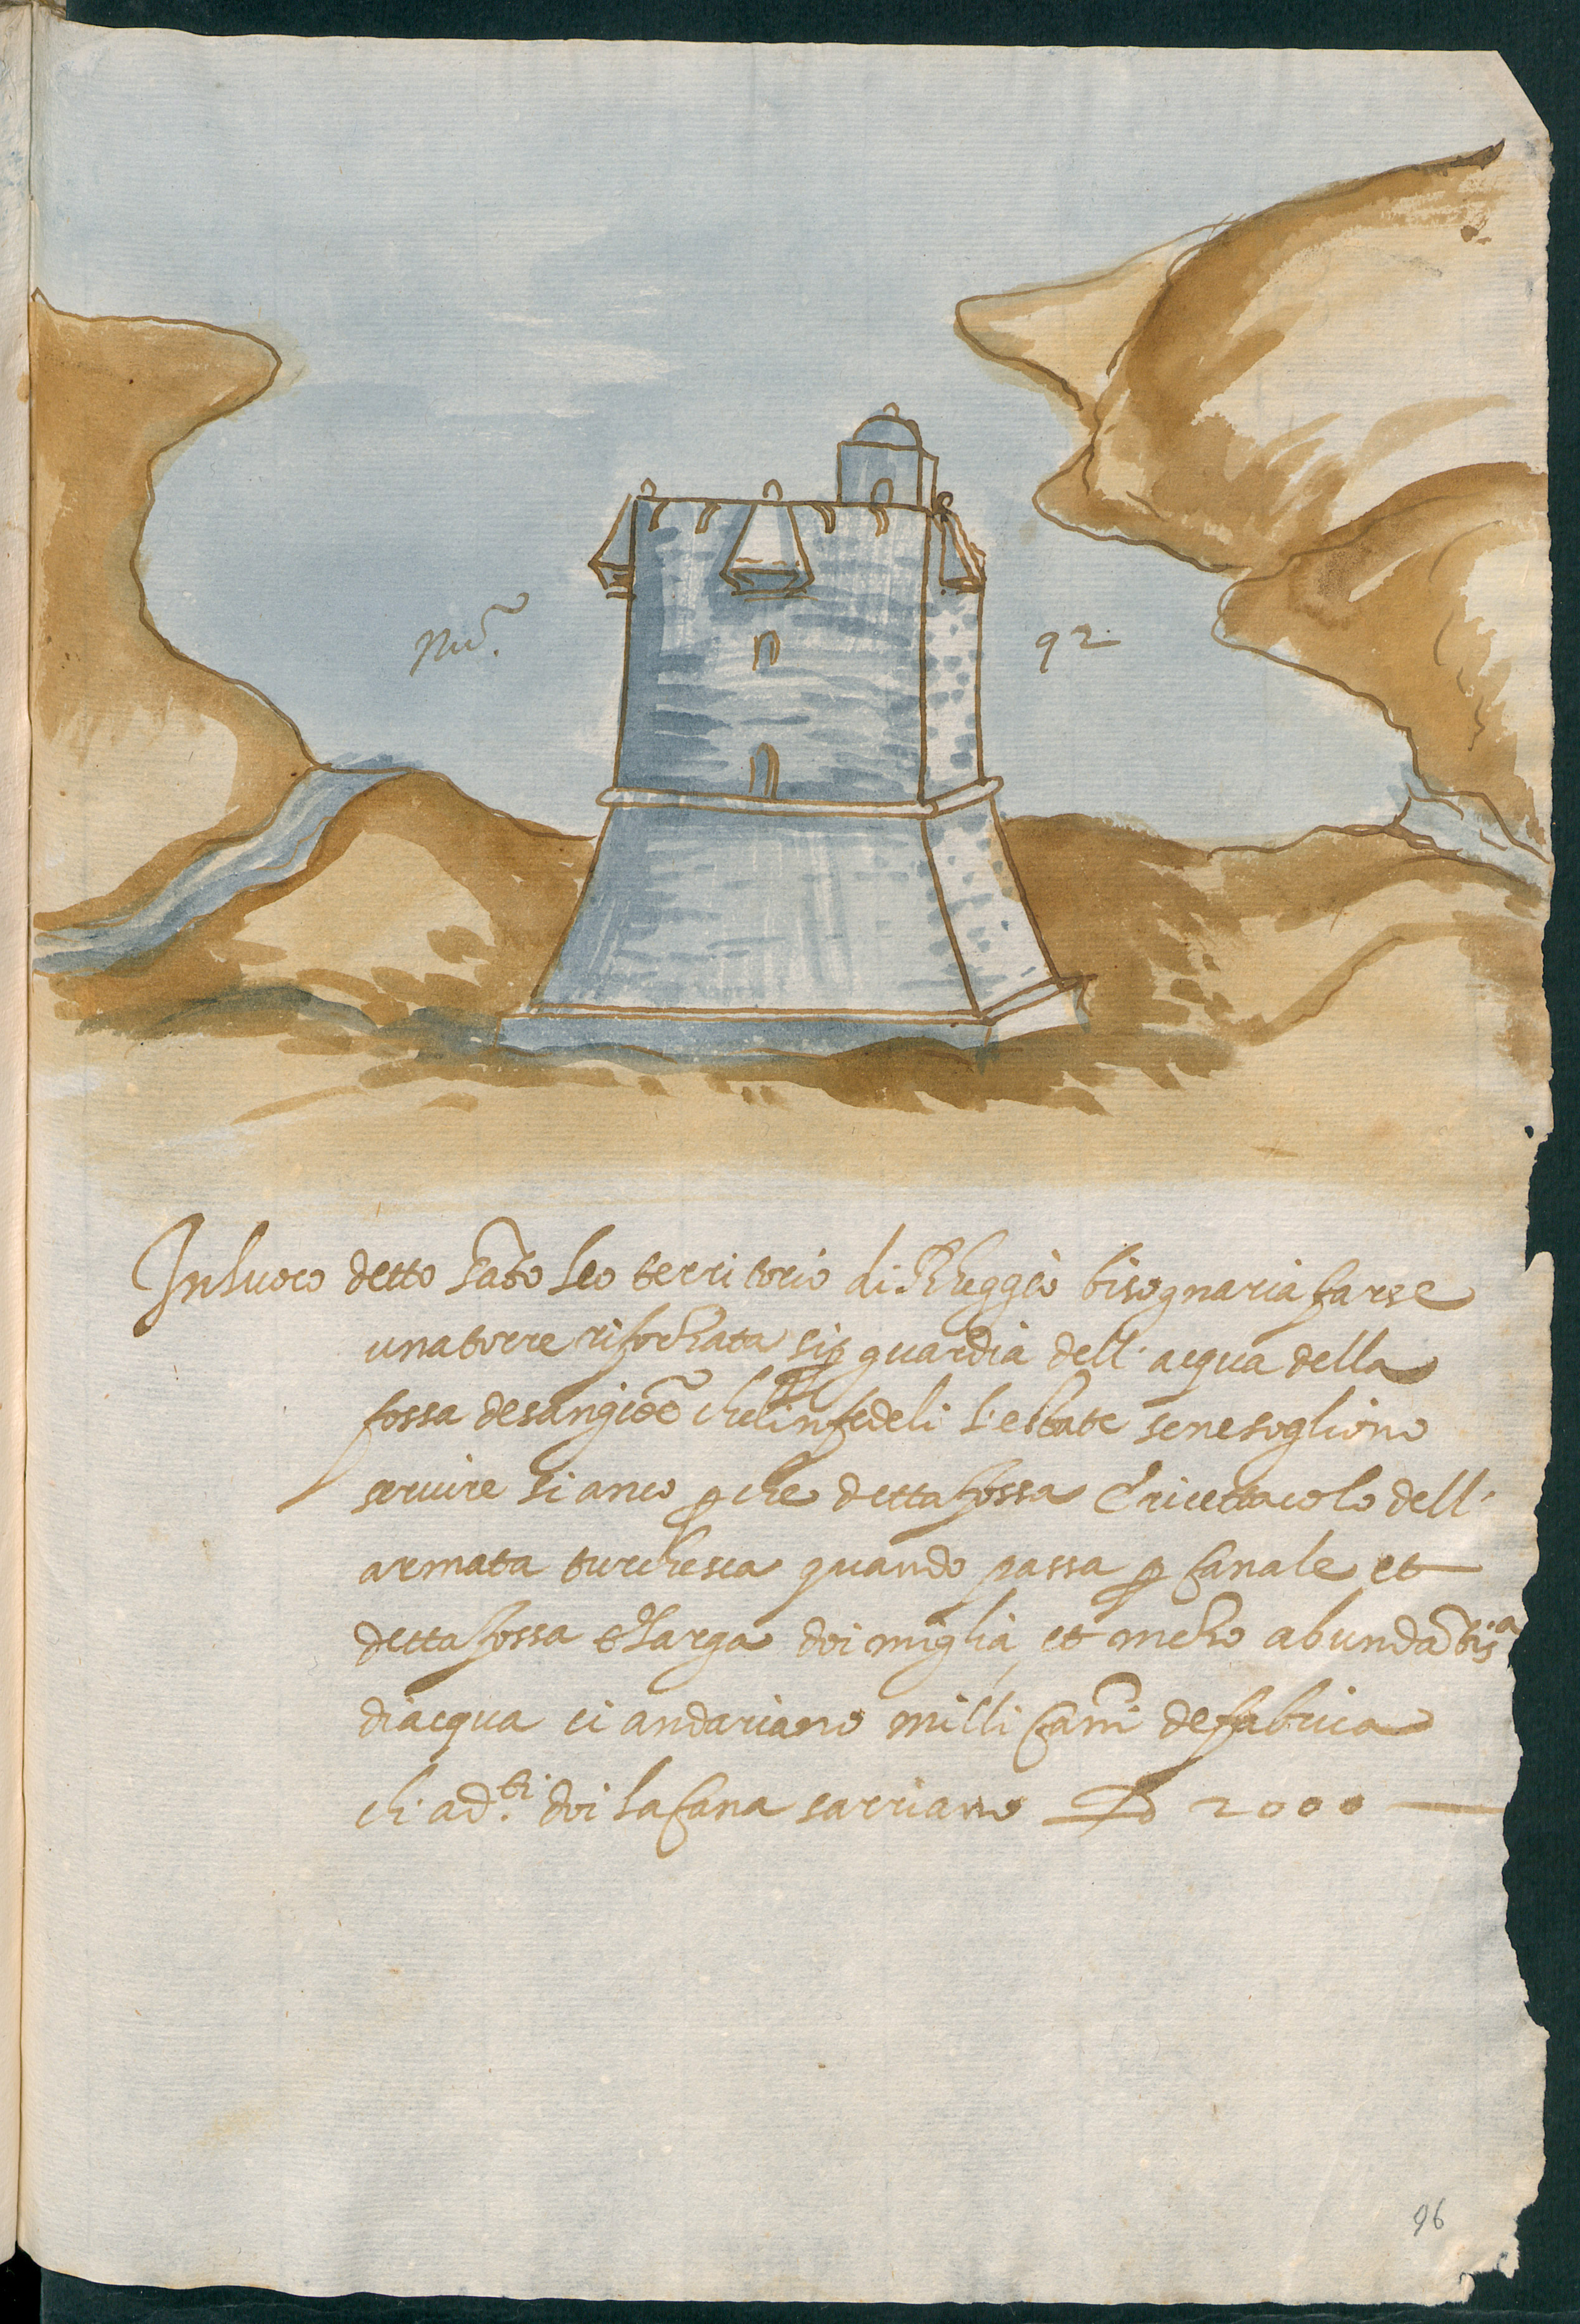 Nu͂. 92
In luoco detto sa͂to leo territorio di Rheggio bisognaria farse
una torre riforzata si ꝑ guardia dell' acqua della
fossa de san gio͂e che l'infedeli l'estate se ne sogliono
servire si anco ꝑche detta fossa è ricettacolo dell'
armata turchesca quando passa ꝑ canale et
detta fossa è larga doi miglia et mezo abunda͂tis.ᵃ
di acqua ci andariano milli can͂i de fabrica
ch'a d.ti doi la cana sarriano D 2000
96